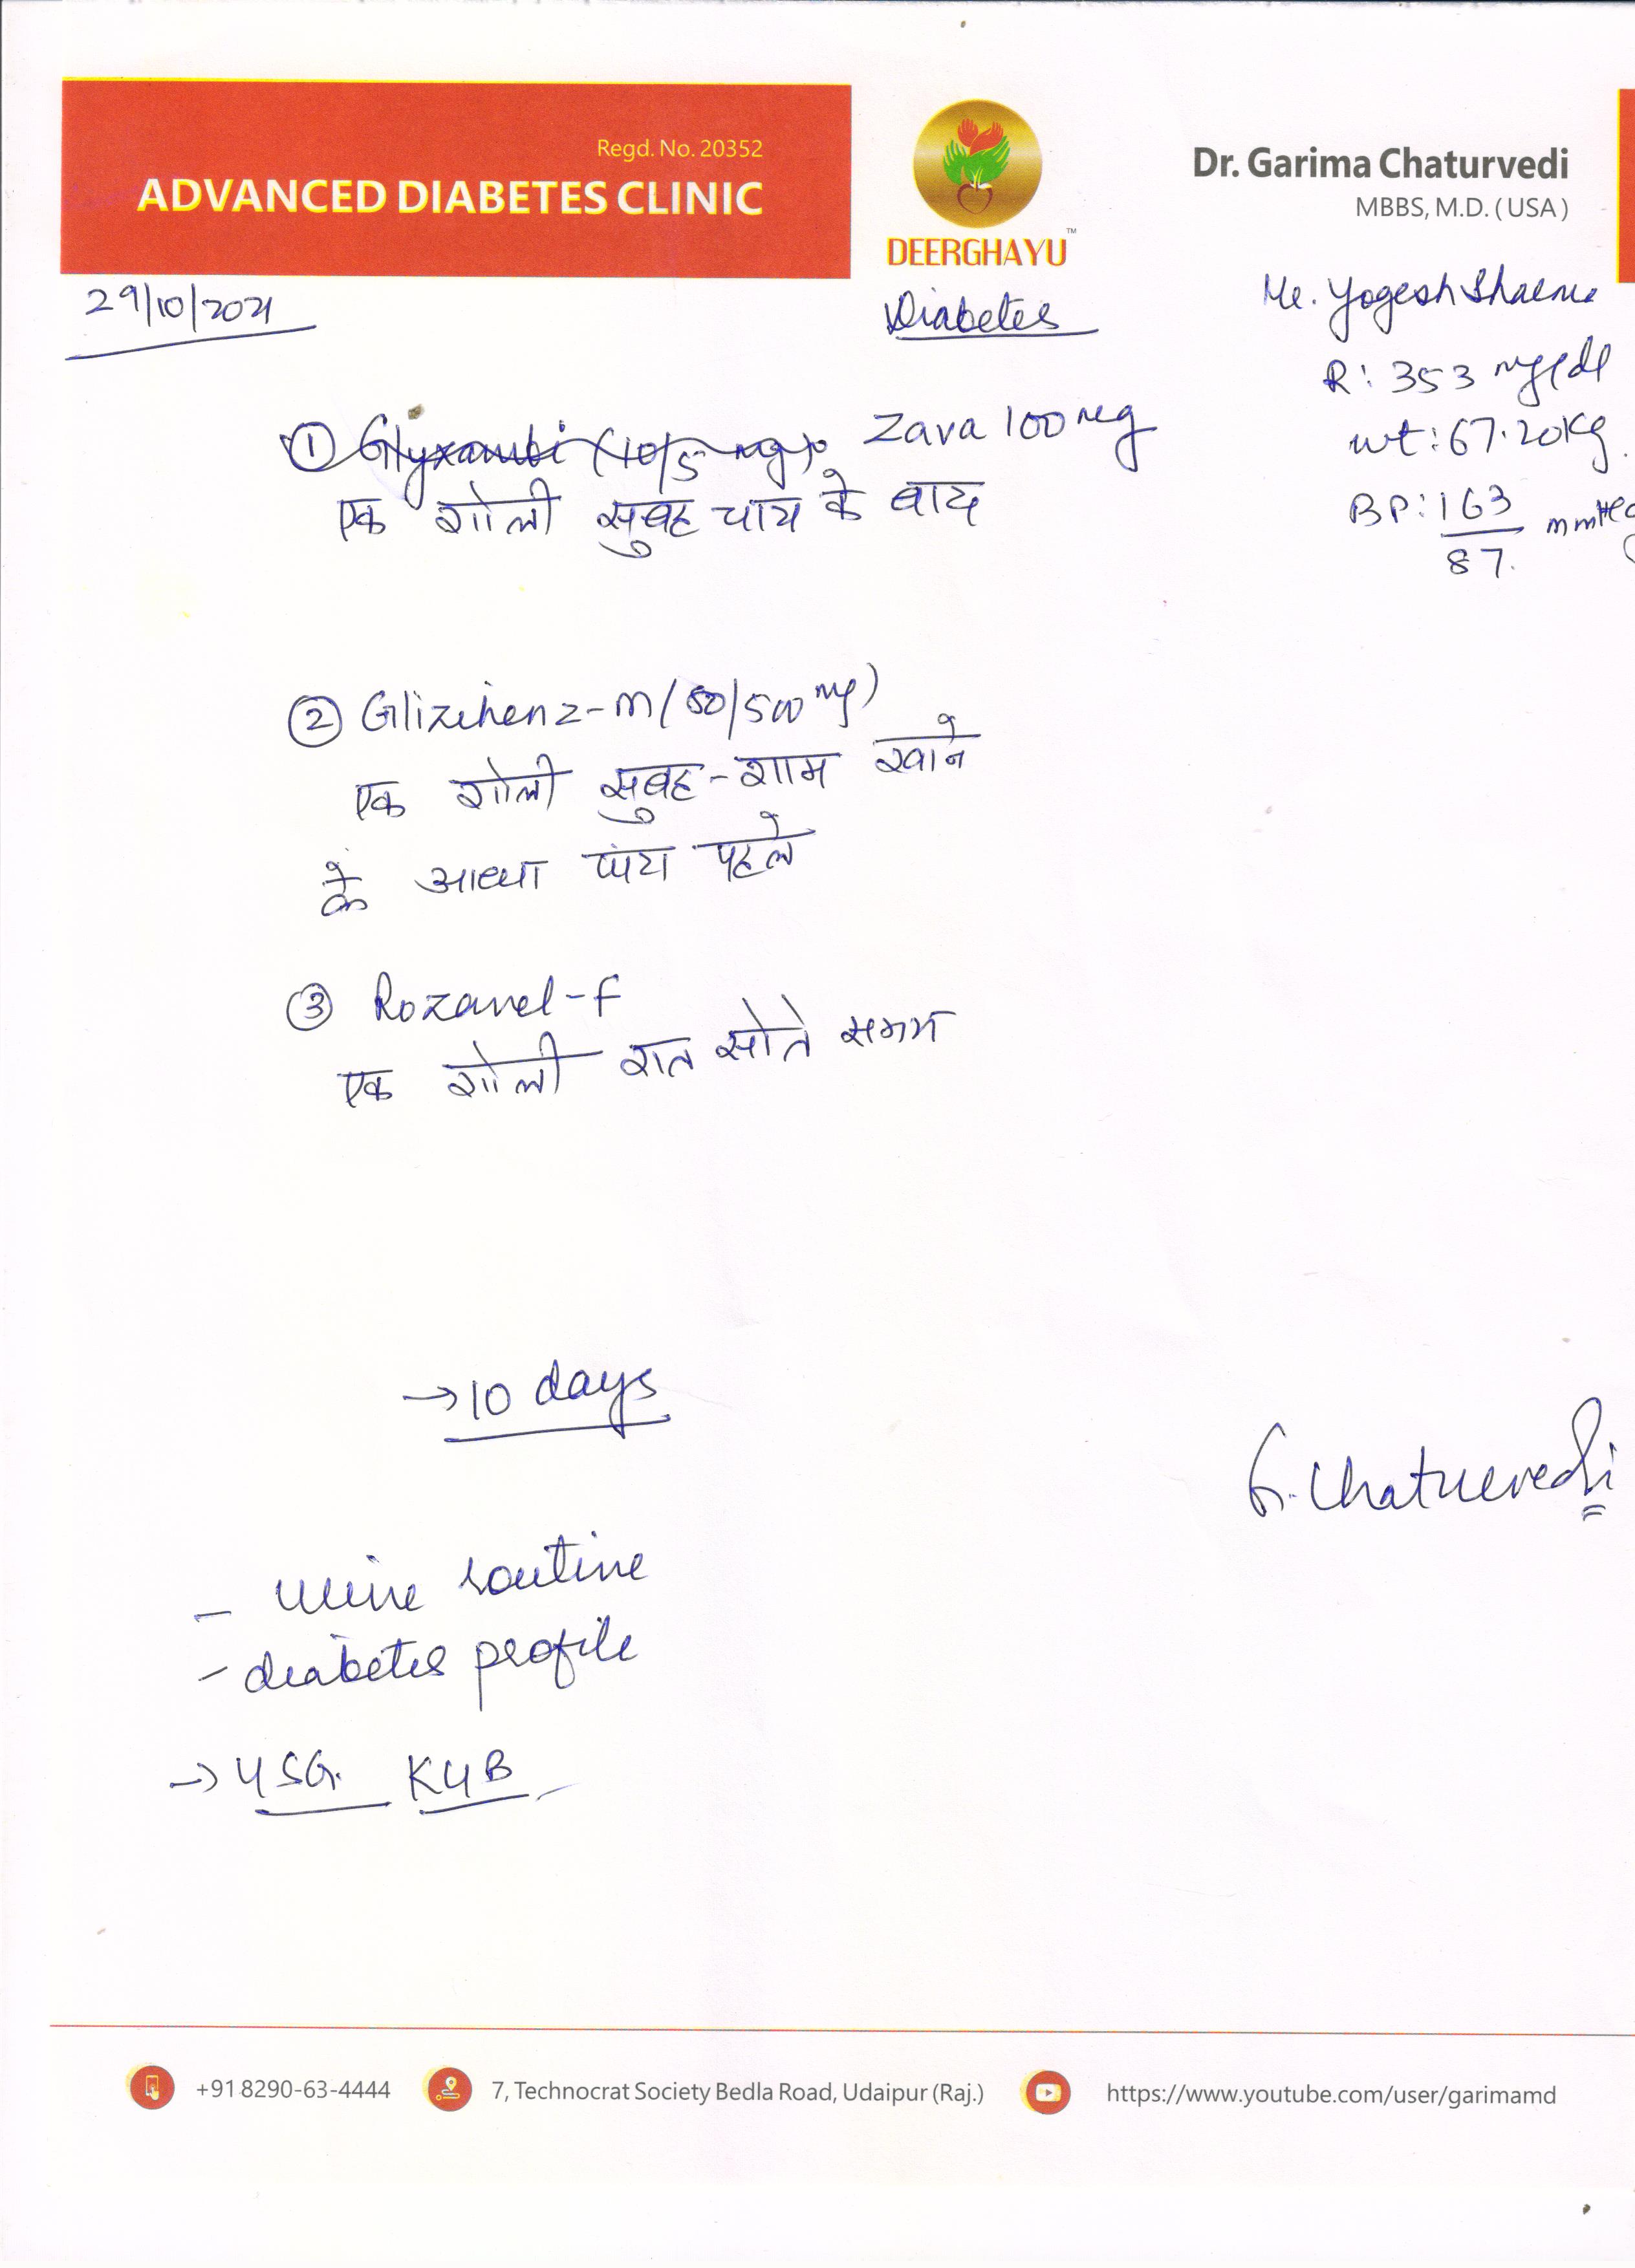 Regd. No. 20352
ADVANCED DIABETES CLINIC
DEERGHAYU™
Dr. Garima Chaturvedi
MBBS, M.D. (USA)
29/10/2021
Diabetes
Mr. Yogesh Sharma
R: 353 mg/dl
wt: 67.20Kg.
BP: 163/87. mmHg
① Glyxambi (10/5 mg) Zava 100 mg
एक गोली सुबह चाय के बाद
② -m (50/500 mg)
एक गोली सुबह-शाम खाने
के आधा घंटा पहले
③ Rozavel-f
एक गोली रात सोते समय
→ 10 days
G. Chaturvedi
- urine routine
- diabetes profile
→ USG. KUB
+91 8290-63-4444
7, Technocrat Society Bedla Road, Udaipur (Raj.)
https://www.youtube.com/user/garimamd